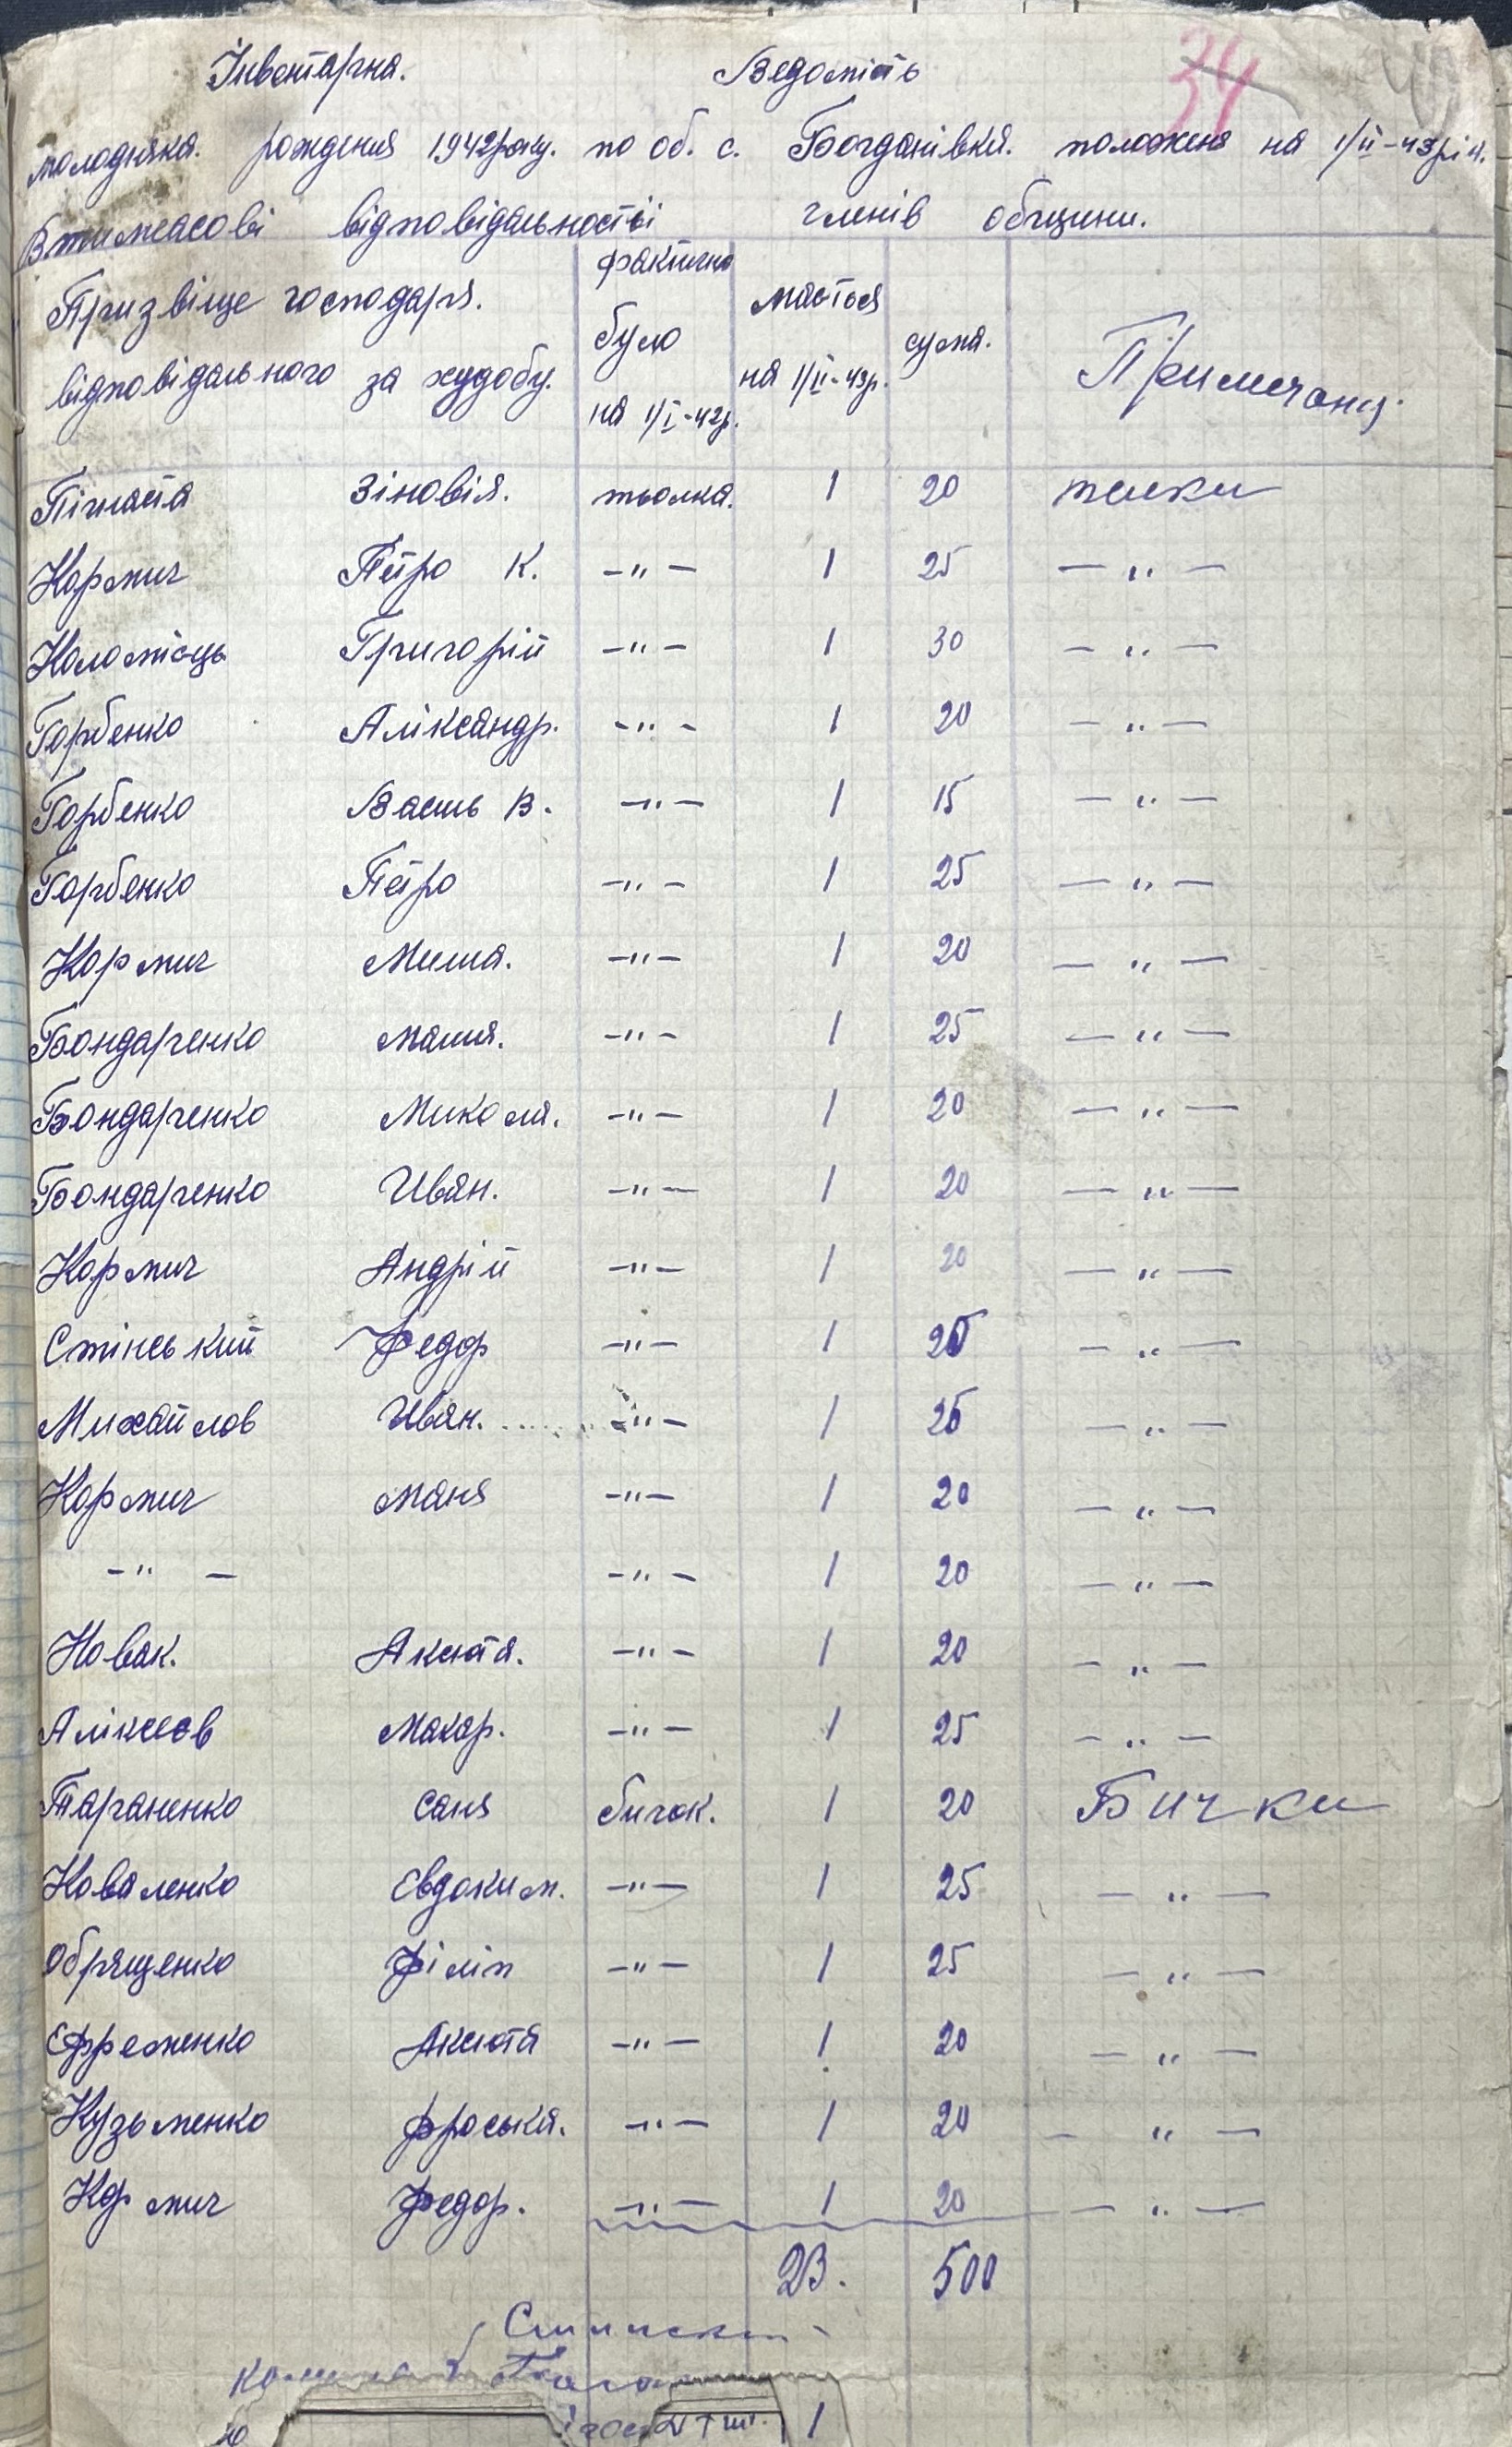 34
Інвентарна. Ведомість
молодняка. рождения 1942року. по об. с. Богданівка. положеня на 1/II-43рік.
В тимчасові відповідальності членів общини.
Призвіще господаря. відповідального за худобу. фактично було на 1/I-42р. маєтьея на 1/II-43р. сума. Примечаня
Зіновія. тьолка. 1 20 телки
Кормич Петро К. -"- 1 25 -"-
Коломієць Григорій -"- 1 30 -"-
Горбенко Аліксандр. -"- 1 20 -"-
Горбенко Василь В. -"- 1 15 -"-
Горбенко Петро -"- 1 25 -"-
Кормич Миша. -"- 1 20 -"-
Бондаренко Маша. -"- 1 25 -"-
Бондаренко Микола. -"- 1 20 -"-
Бондаренко Иван. -"- 1 20 -"-
Кормич Андрій -"- 1 20 -"-
Стінський Федор -"- 1 20 -"-
Михайлов Иван. -"- 1 25 -"-
Кормич Маня -"- 1 20 -"-
-"- -"- 1 20 -"-
Новак. Аксюта. -"- 1 20 -"-
Аліксєєв Макар. -"- 1 25 -"-
Тараненко Саня бичок. 1 20 Бички
Коваленко Євдоким. -"- 1 25 -"-
Обрященко Філіп -"- 1 25 -"-
Єфременко Аксюта -"- 1 20 -"-
Кузьменко Фроська. -"- 1 20 -"-
Кормич Федор. -"- 1 20 -"-
23. 500
1